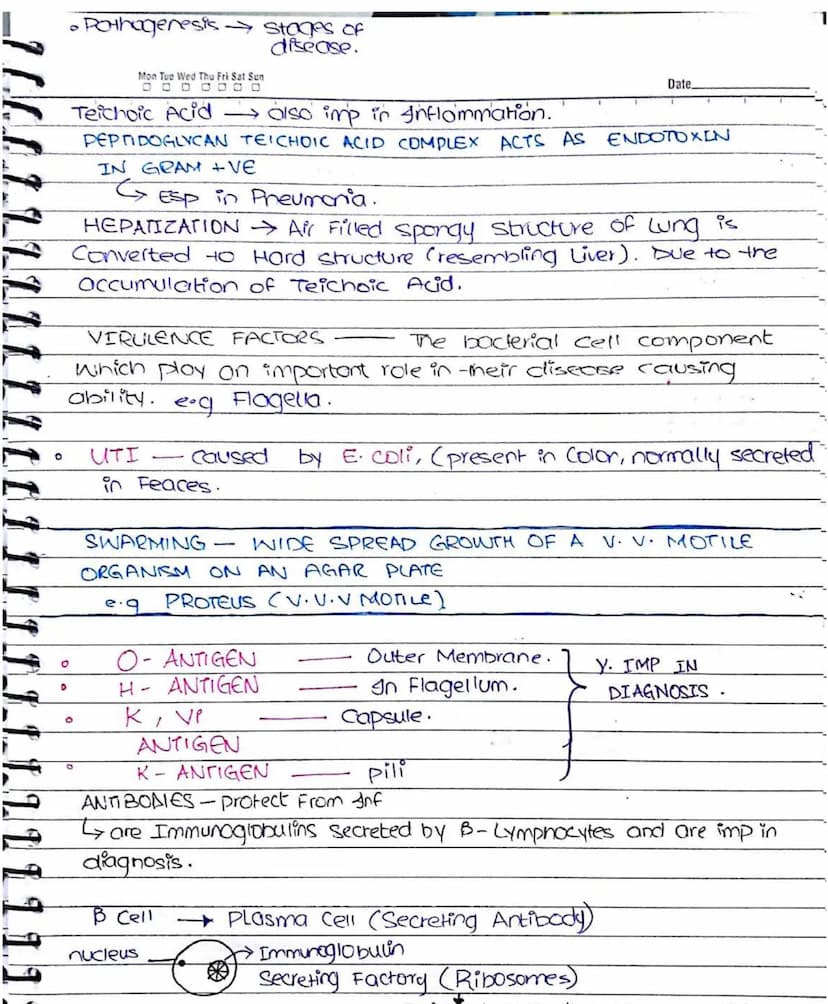 • Pathogenesis → stages of
disease.
Mon Tue Wed Thu Fri Sat Sun
Date
Teichoic Acid → also imp in Inflammation.
PEPTIDOGLYCAN TEICHOIC ACID COMPLEX ACTS AS ENDOTOXIN
IN GRAM +VE
↳ Esp in Pneumonia.
HEPATIZATION → Air Filled spongy structure of Lung is
Converted to Hard structure (resembling Liver). Due to the
accumulation of Teichoic Acid.
VIRULENCE FACTORS — The bacterial cell component
which play an important role in their disease causing
ability. e.g Flagella.
• UTI — caused by E. coli, (present in Color, normally secreted
in Feaces.
SWARMING — WIDE SPREAD GROWTH OF A V. V. MOTILE
ORGANISM ON AN AGAR PLATE
e.g PROTEUS (V.V.V MOTILE)
• O- ANTIGEN — Outer Membrane.
• H- ANTIGEN — In Flagellum.
V. IMP IN
DIAGNOSIS.
• K, VI — Capsule.
ANTIGEN
• K- ANTIGEN — pili
ANTIBODIES — protect From Inf
↳ are Immunoglobulins secreted by B-Lymphocytes and are imp in
diagnosis.
B Cell → Plasma Cell (Secreting Antibody)
nucleus → Immunoglobulin
Secreting Factory (Ribosomes)